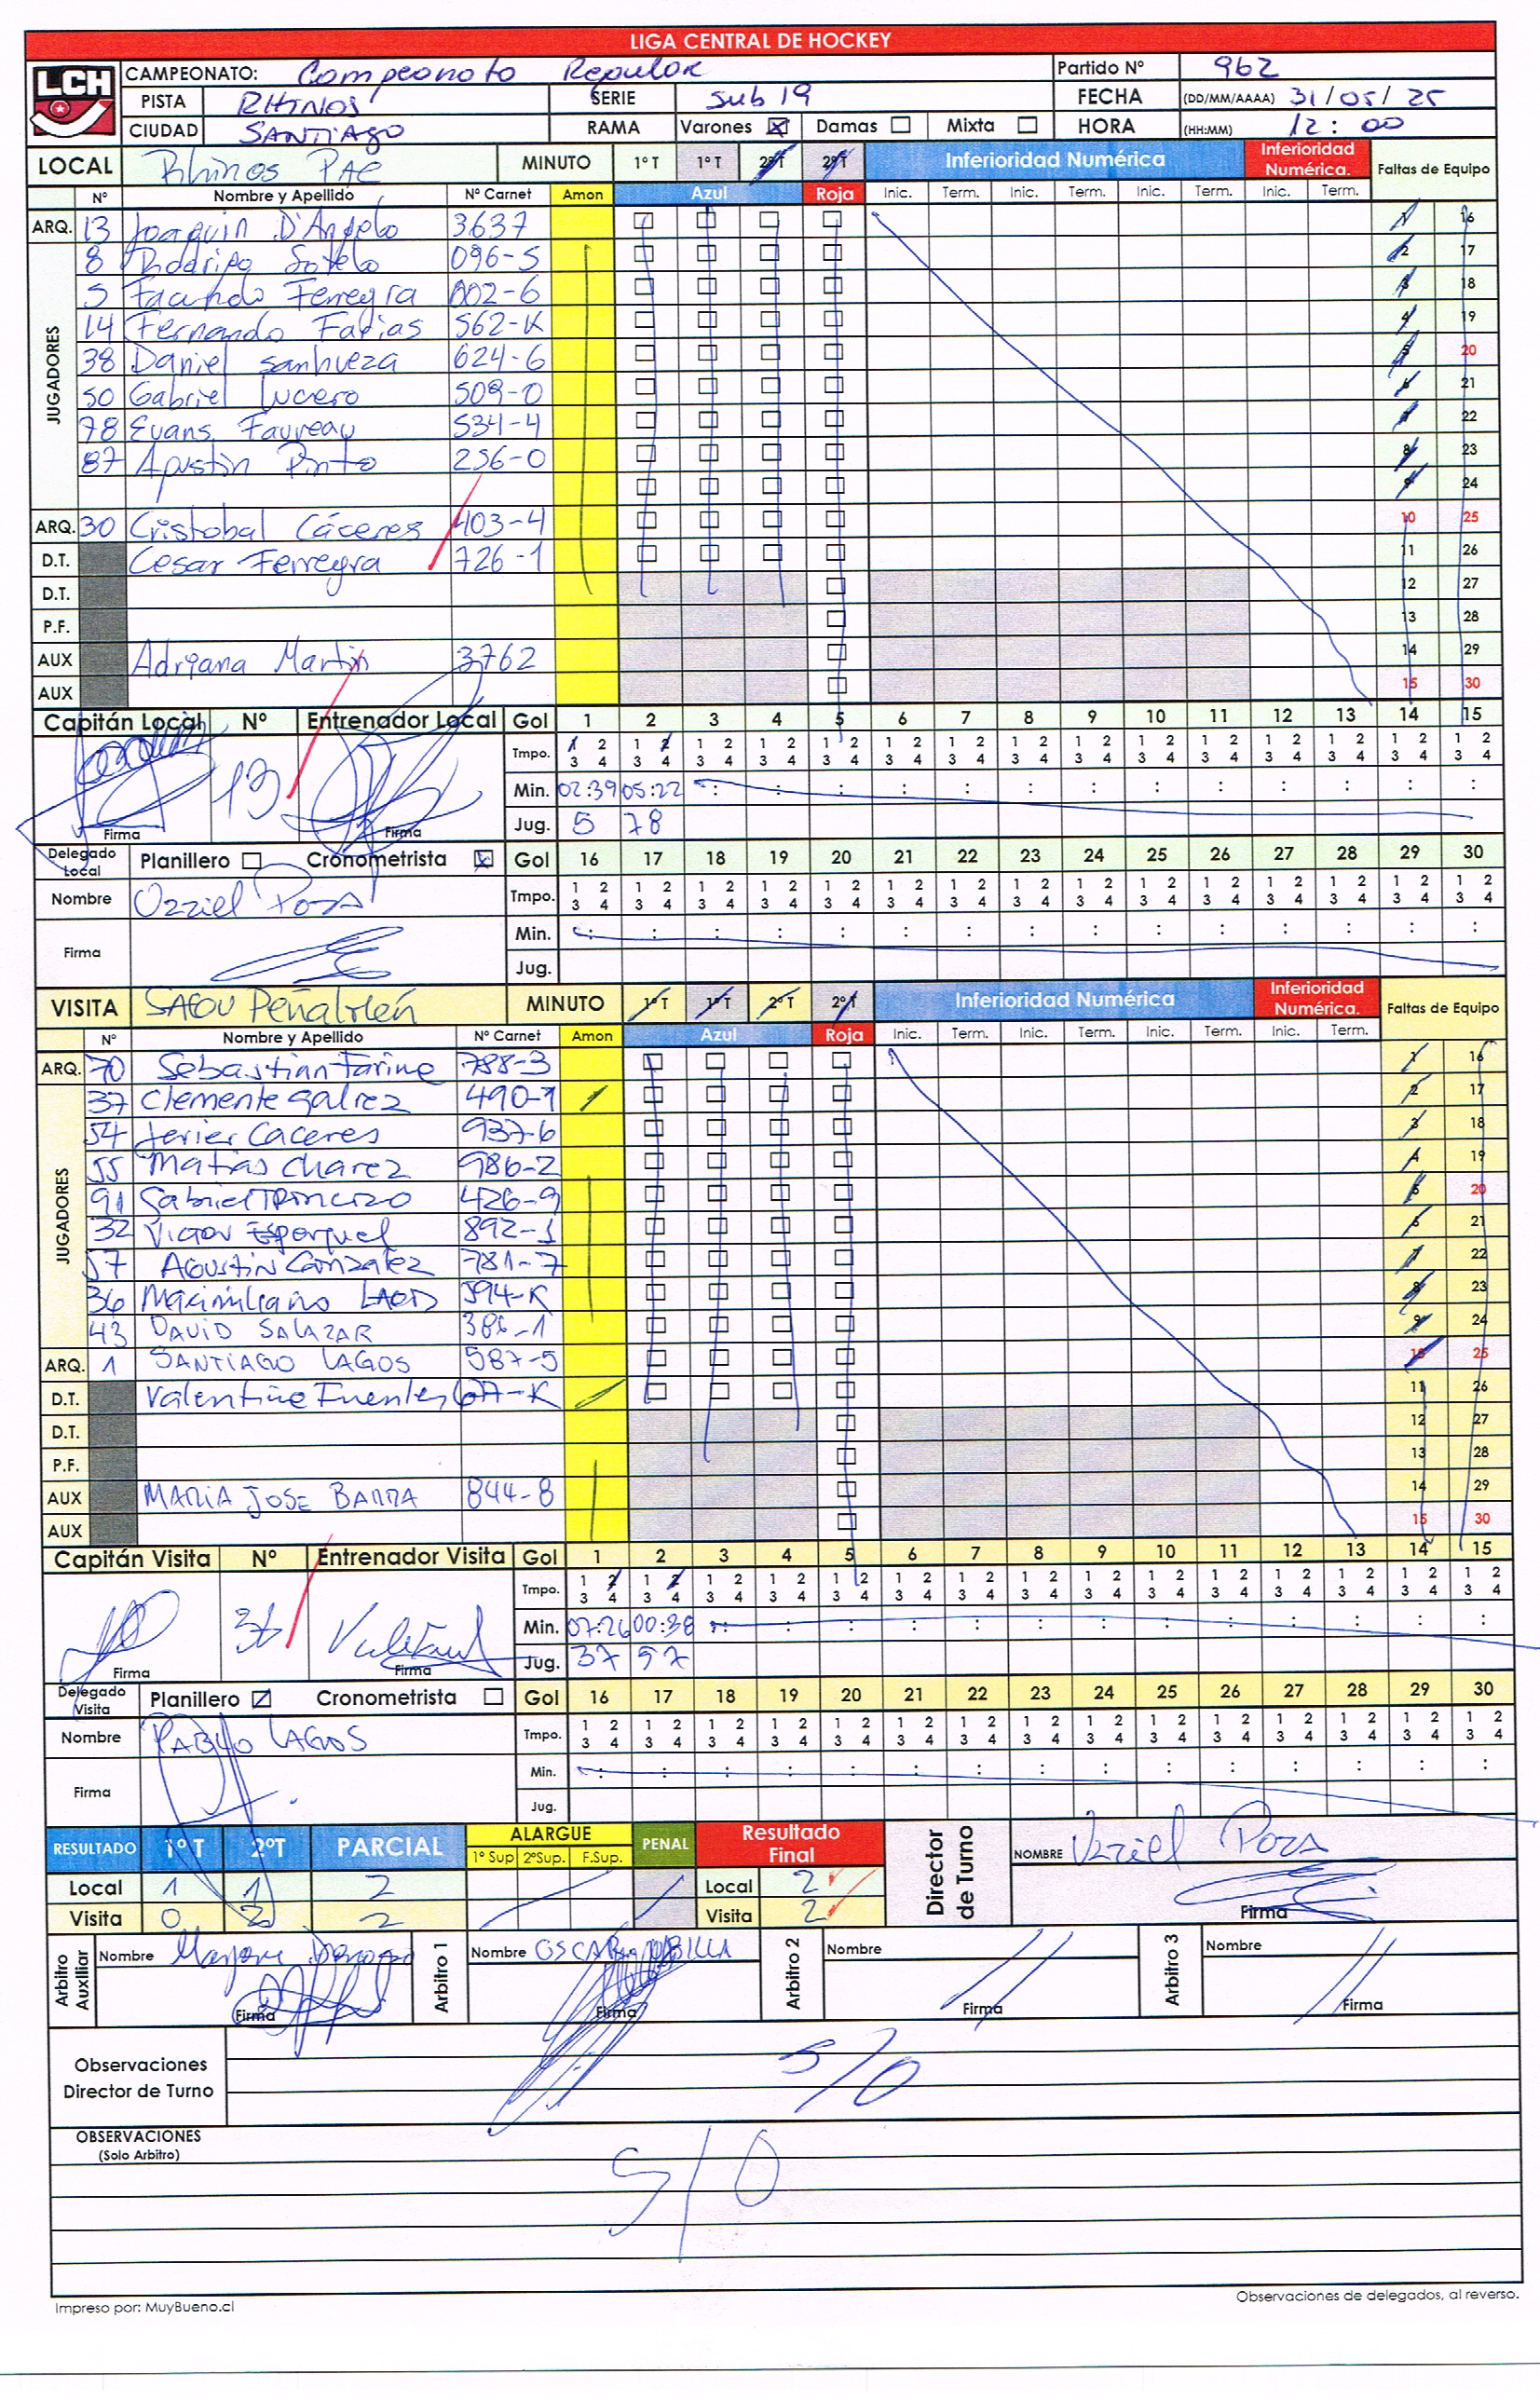 LIGA CENTRAL DE HOCKEY
LCH CAMPEONATO: Campeonato Regular Partido Nº 962
PISTA RHINOS SERIE sub 19 FECHA (DD/MM/AAAA) 31/05/25
CIUDAD SANTIAGO RAMA Varones Damas Mixta HORA (HH:MM) 12:00
LOCAL Rhinos PAC MINUTO 1º T 1º T 2º T 2º T Inferioridad Numérica Inferioridad Numérica. Faltas de Equipo
Nº Nombre y Apellido Nº Carnet Amon Azul Roja Inic. Term. Inic. Term. Inic. Term. Inic. Term.
ARQ. 13 Joaquin D'Angelo 3637 1 16
JUGADORES
8 Rodrigo Sotelo 096-5 2 17
5 Facundo Ferreyra 002-6 3 18
14 Fernando Farias 562-K 4 19
38 Daniel Sanhueza 624-6 5 20
50 Gabriel Lucero 509-0 6 21
78 Evans Favreau 534-4 7 22
87 Agustin Pinto 256-0 8 23
9 24
ARQ. 30 Cristobal Cáceres 403-4 10 25
D.T. Cesar Ferreyra 726-1 11 26
D.T. 12 27
P.F. 13 28
AUX Adriana Martin 3762 14 29
AUX 15 30
Capitán Local Nº Entrenador Local Gol 1 2 3 4 5 6 7 8 9 10 11 12 13 14 15
Tmpo. 1 2 3 4 1 2 3 4 1 2 3 4 1 2 3 4 1 2 3 4 1 2 3 4 1 2 3 4 1 2 3 4 1 2 3 4 1 2 3 4 1 2 3 4 1 2 3 4 1 2 3 4 1 2 3 4 1 2 3 4
13 Min. 02:39 05:22 : : : : : : : : : : : : :
Firma Firma Jug. 5 78
Delegado Local Planillero Cronometrista Gol 16 17 18 19 20 21 22 23 24 25 26 27 28 29 30
Nombre Uzziel Poza Tmpo. 1 2 3 4 1 2 3 4 1 2 3 4 1 2 3 4 1 2 3 4 1 2 3 4 1 2 3 4 1 2 3 4 1 2 3 4 1 2 3 4 1 2 3 4 1 2 3 4 1 2 3 4 1 2 3 4 1 2 3 4
Firma Min. : : : : : : : : : : : : : : :
Jug.
VISITA SAFOU Peñalolén MINUTO 1º T 1º T 2º T 2º T Inferioridad Numérica Inferioridad Numérica. Faltas de Equipo
Nº Nombre y Apellido Nº Carnet Amon Azul Roja Inic. Term. Inic. Term. Inic. Term. Inic. Term.
ARQ. 70 Sebastian Farine 788-3 1 16
JUGADORES
37 Clemente Galvez 490-1 2 17
54 Javier Caceres 937-6 3 18
55 Matias Chavez 986-2 4 19
91 Gabriel 426-9 5 20
32 Victor Esparquel 892-1 6 21
57 Agustin Gonzalez 781-7 7 22
36 Maximiliano Lagos 594-K 8 23
43 DAVID SALAZAR 386-1 9 24
ARQ. 1 SANTIAGO LAGOS 587-5 10 25
D.T. Valentine Fuentes 677-K 11 26
D.T. 12 27
P.F. 13 28
AUX MARIA JOSE BARRA 844-8 14 29
AUX 15 30
Capitán Visita Nº Entrenador Visita Gol 1 2 3 4 5 6 7 8 9 10 11 12 13 14 15
Tmpo. 1 2 3 4 1 2 3 4 1 2 3 4 1 2 3 4 1 2 3 4 1 2 3 4 1 2 3 4 1 2 3 4 1 2 3 4 1 2 3 4 1 2 3 4 1 2 3 4 1 2 3 4 1 2 3 4 1 2 3 4
Min. 07:26 00:38 : : : : : : : : : : : : :
Firma Firma Jug. 37 57
Delegado Visita Planillero Cronometrista Gol 16 17 18 19 20 21 22 23 24 25 26 27 28 29 30
Nombre PABLO LAGOS Tmpo. 1 2 3 4 1 2 3 4 1 2 3 4 1 2 3 4 1 2 3 4 1 2 3 4 1 2 3 4 1 2 3 4 1 2 3 4 1 2 3 4 1 2 3 4 1 2 3 4 1 2 3 4 1 2 3 4 1 2 3 4
Firma Min. : : : : : : : : : : : : : : :
Jug.
RESULTADO 1º T 2ºT PARCIAL ALARGUE 1º Sup 2ºSup. F.Sup. PENAL Resultado Final Director de Turno NOMBRE Uzziel Poza
Local 1 1 2 Local 2
Visita 0 2 2 Visita 2 Firma
Arbitro Auxiliar Nombre Arbitro 1 Nombre OSCAR Arbitro 2 Nombre Arbitro 3 Nombre
Firma Firma Firma Firma
Observaciones Director de Turno S/O
OBSERVACIONES
(Solo Arbitro)
S/O
Impreso por: MuyBueno.cl Observaciones de delegados, al reverso.